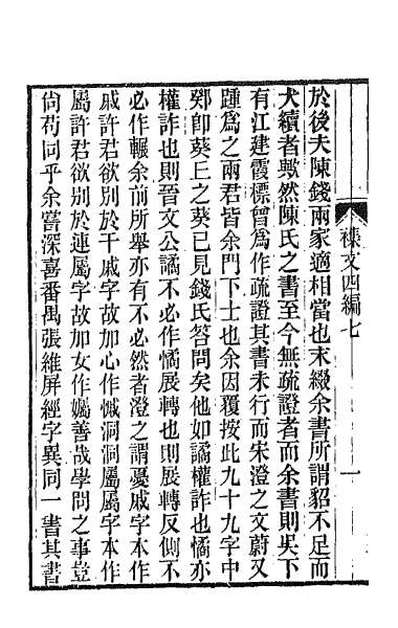 襍文四編七
一
於後夫陳錢兩家適相當也末綴余書所謂貂不足而
犬續者歟然陳氏之書至今無疏證者而余書則吳下
有江建霞標曾爲作疏證其書未行而朱澄之文蔚又
踵爲之兩君皆余門下士也余因覆按此九十九字中
鄈卽葵丘之葵已見錢氏答問矣他如譎權詐也憰亦
權詐也則晉文公譎不必作憰展轉也則展轉反側不
必作輾余前所舉亦有不必然者澄之謂憂戚字本作
戚許君欲別於干戚字故加心作慽洞洞屬屬字本作
屬許君欲別於連屬字故加女作孎善哉學問之事豈
尙苟同乎余嘗深喜番禺張維屏經字異同一書其書